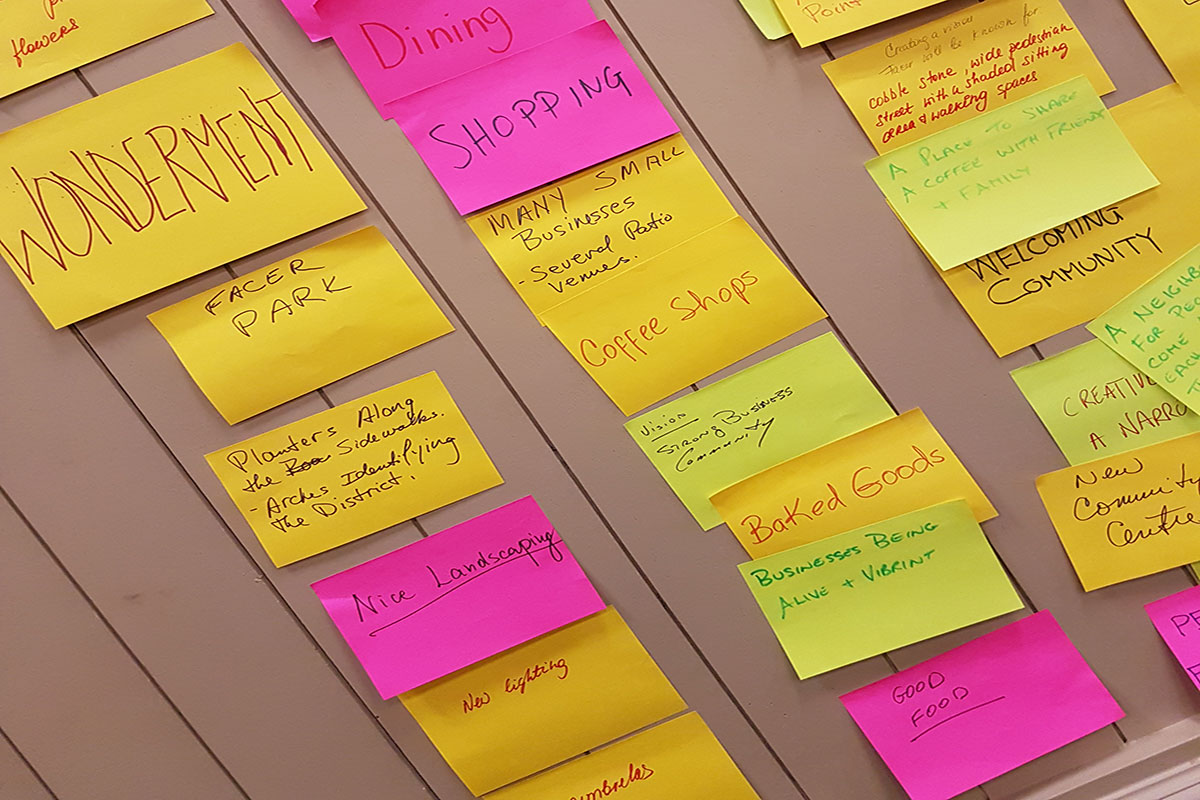 flowers
WONDERMENT
FACER
PARK
Planters Along
the Sidewalks.
- Arches Identifying
the District.
Nice Landscaping
New lighting
umbrelas
Dining
SHOPPING
MANY SMALL
Businesses
- Several Patio
Venues.
Coffee Shops
Vision
STRONG BUSINESS
Community
Baked Goods
BUSINESSES BEING
ALIVE + VIBRINT
GOOD
FOOD
Point
Creating a vision
Facer will be known for
cobble stone, wide pedestrian
street with a shaded sitting
area & walking spaces
A PLACE TO SHARE
A COFFEE WITH FRIEND
+ FAMILY
WELCOMING
COMMUNITY
A NEIGHB
FOR PEO
COME
EACH
CREATIVE
A NARRO
New
Community
Centre
PE